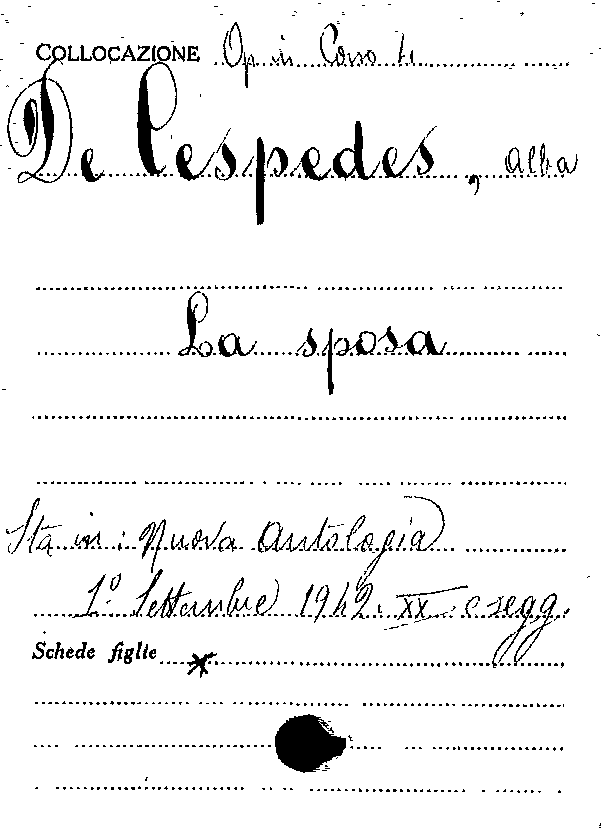 COLLOCAZIONE Op in Corso 4.
De Cespedes, Alba
La sposa
Sta in: Nuova Antologia
1° Settembre 1942. XX. e segg.
Schede figlie x